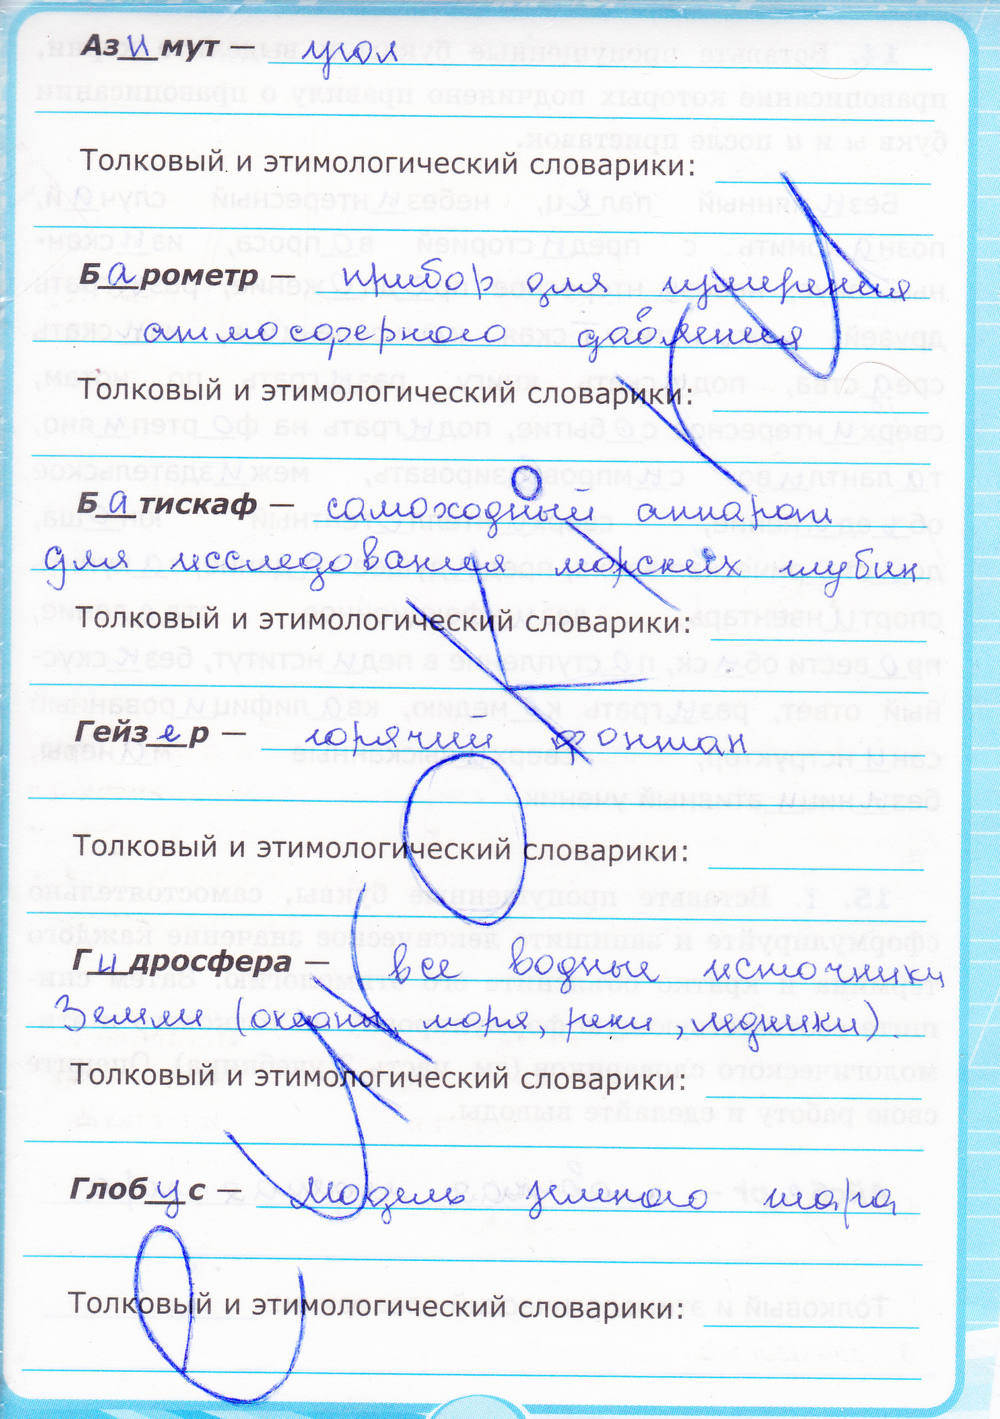 Азимут — угол
Толковый и этимологический словарики:
Барометр — прибор для измерения
атмосферного давления
Толковый и этимологический словарики:
Батискаф — самоходный аппарат
для исследования морских глубин
Толковый и этимологический словарики:
Гейзер — горячий фонтан
Толковый и этимологический словарики:
Гидросфера — все водные источники
Земли (океаны, моря, реки, ледники).
Толковый и этимологический словарики:
Глобус — модель земного шара
Толковый и этимологический словарики: